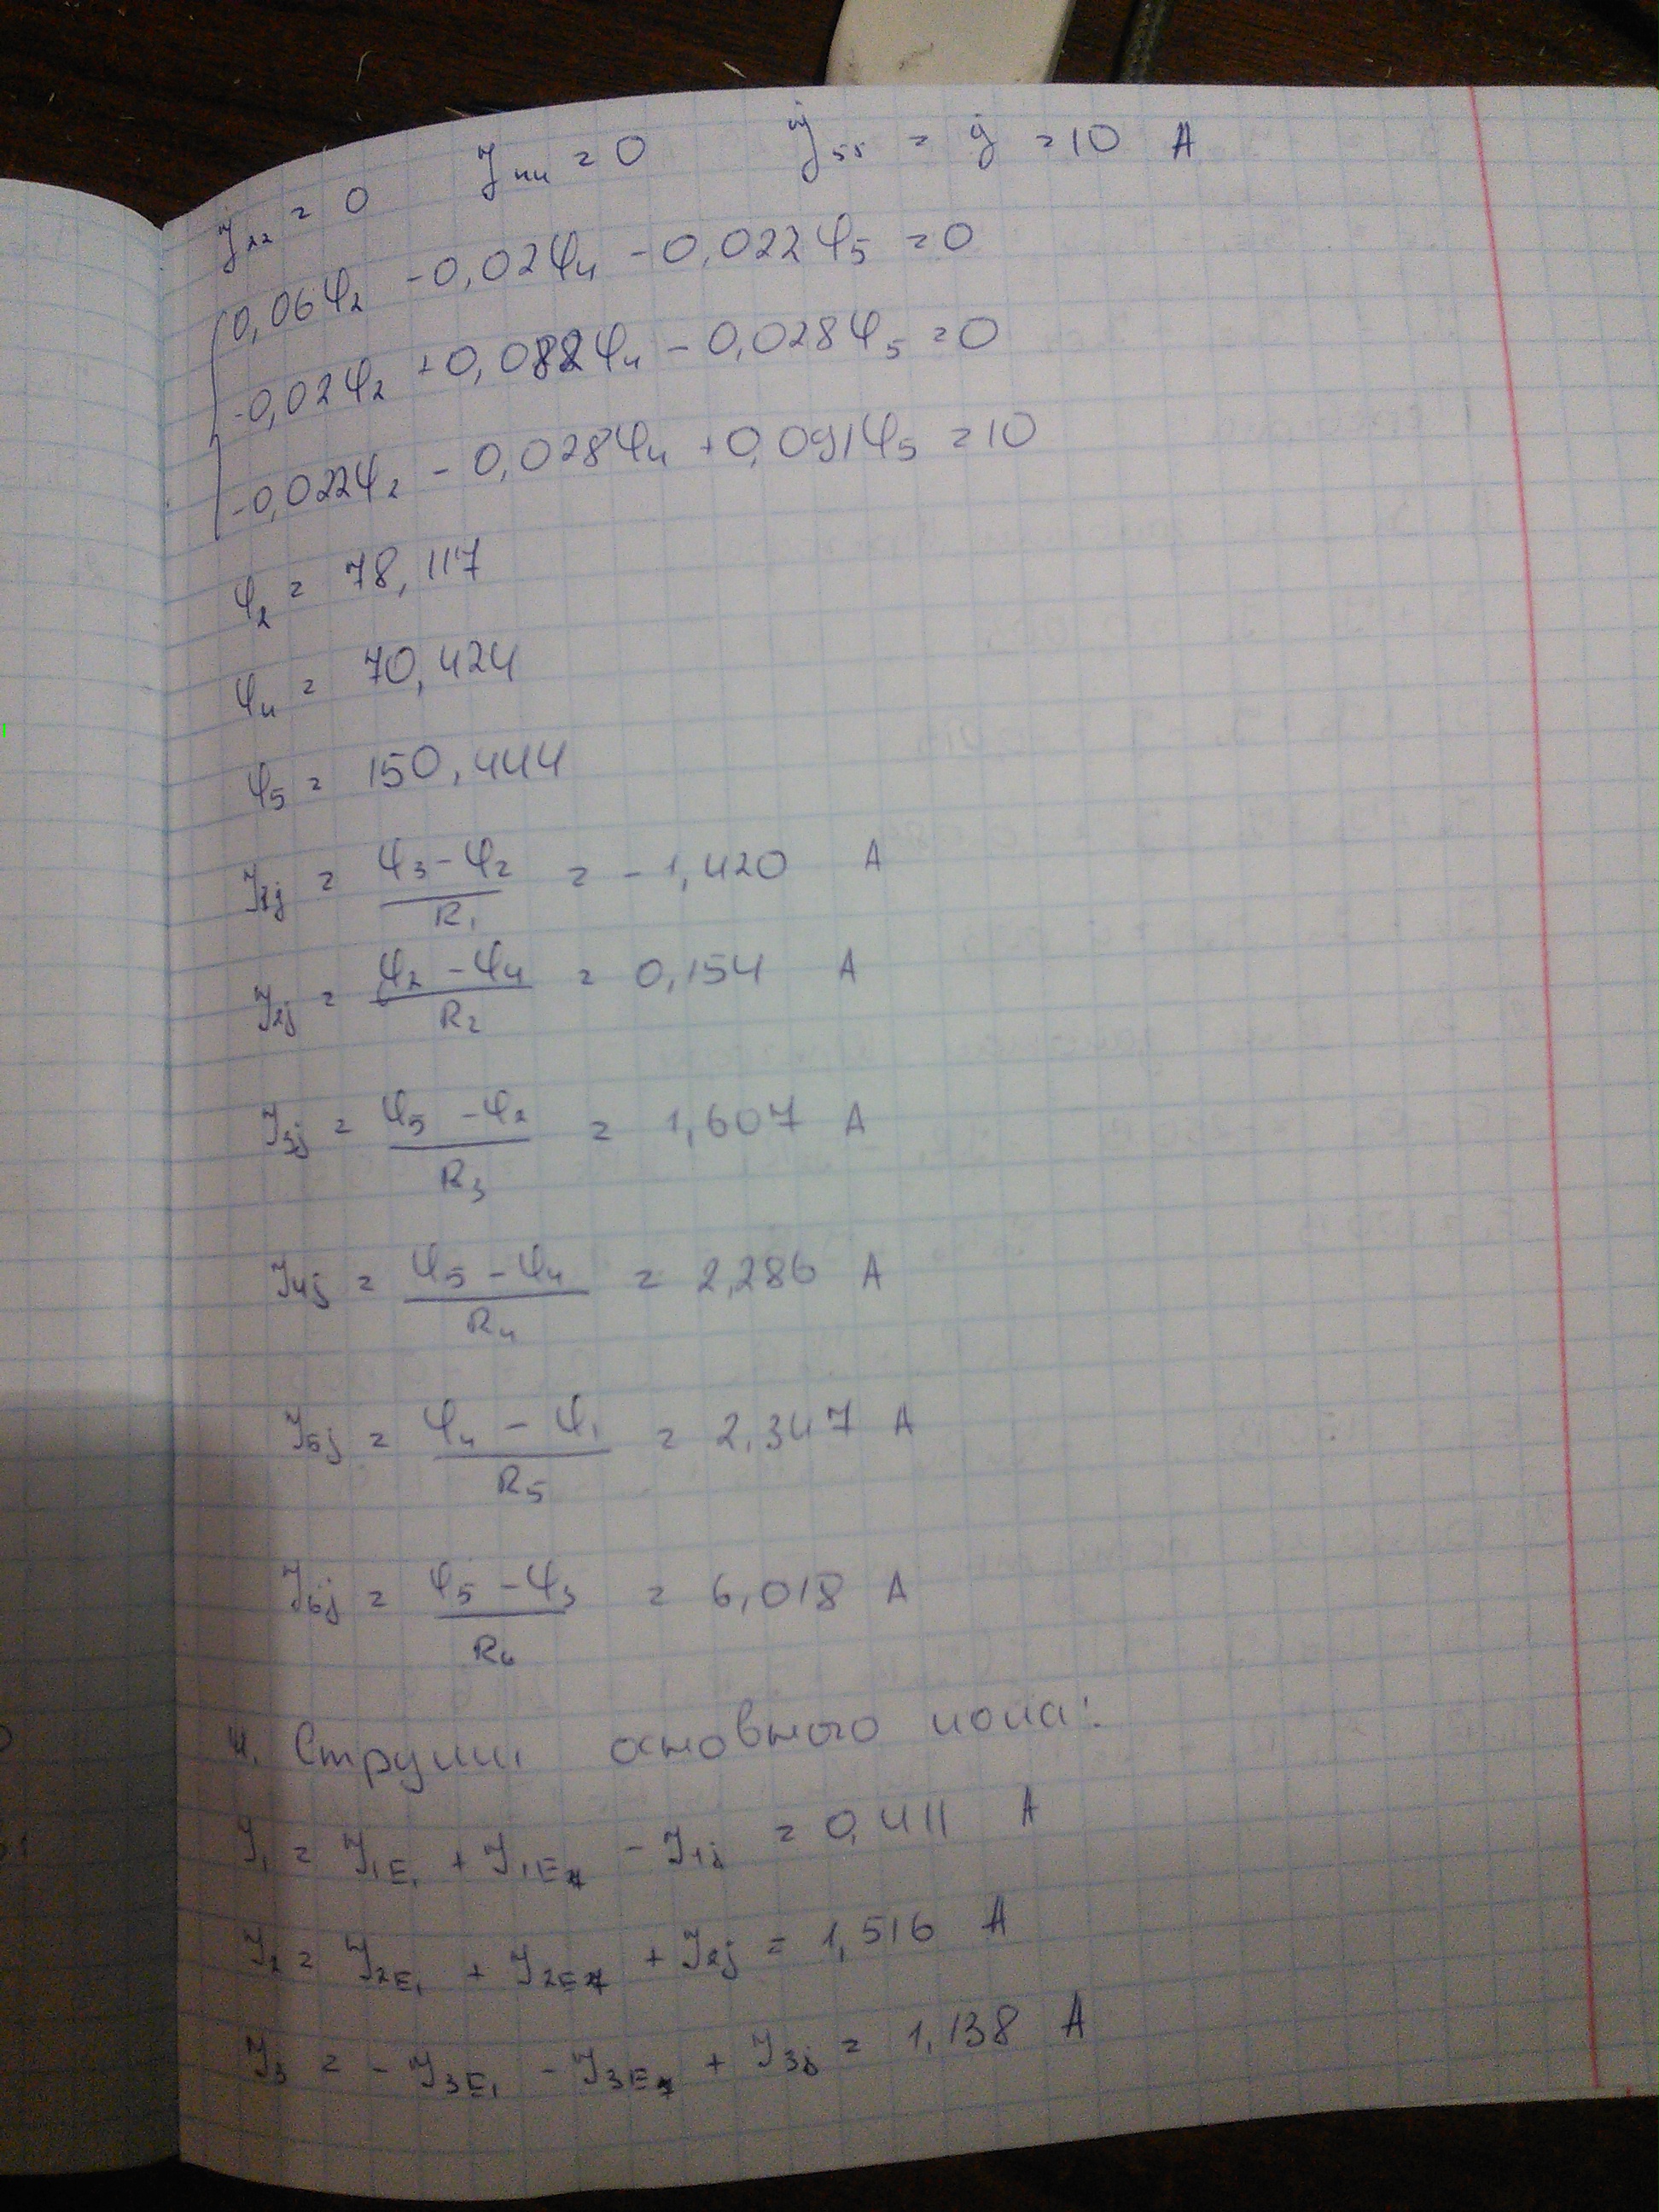 J₂₂ = 0 J₄₄ = 0 J₅₅ = j = 10 A
0,06φ₂ - 0,02φ₄ - 0,022φ₅ = 0
-0,02φ₂ + 0,082φ₄ - 0,028φ₅ = 0
-0,022φ₂ - 0,028φ₄ + 0,091φ₅ = 10
φ₂ = 78,117
φ₄ = 70,424
φ₅ = 150,444
J₁j = (φ₃ - φ₂) / R₁ = -1,420 A
J₂j = (φ₂ - φ₄) / R₂ = 0,154 A
J₃j = (φ₅ - φ₂) / R₃ = 1,607 A
J₄j = (φ₅ - φ₄) / R₄ = 2,286 A
J₅j = (φ₄ - φ₁) / R₅ = 2,347 A
J₆j = (φ₅ - φ₃) / R₆ = 6,018 A
4. Струми основного кола:
J₁ = J₁E₁ + J₁E - J₁j = 0,411 A
J₂ = J₂E₁ + J₂E + J₂j = 1,516 A
J₃ = -J₃E₁ - J₃E + J₃j = 1,138 A